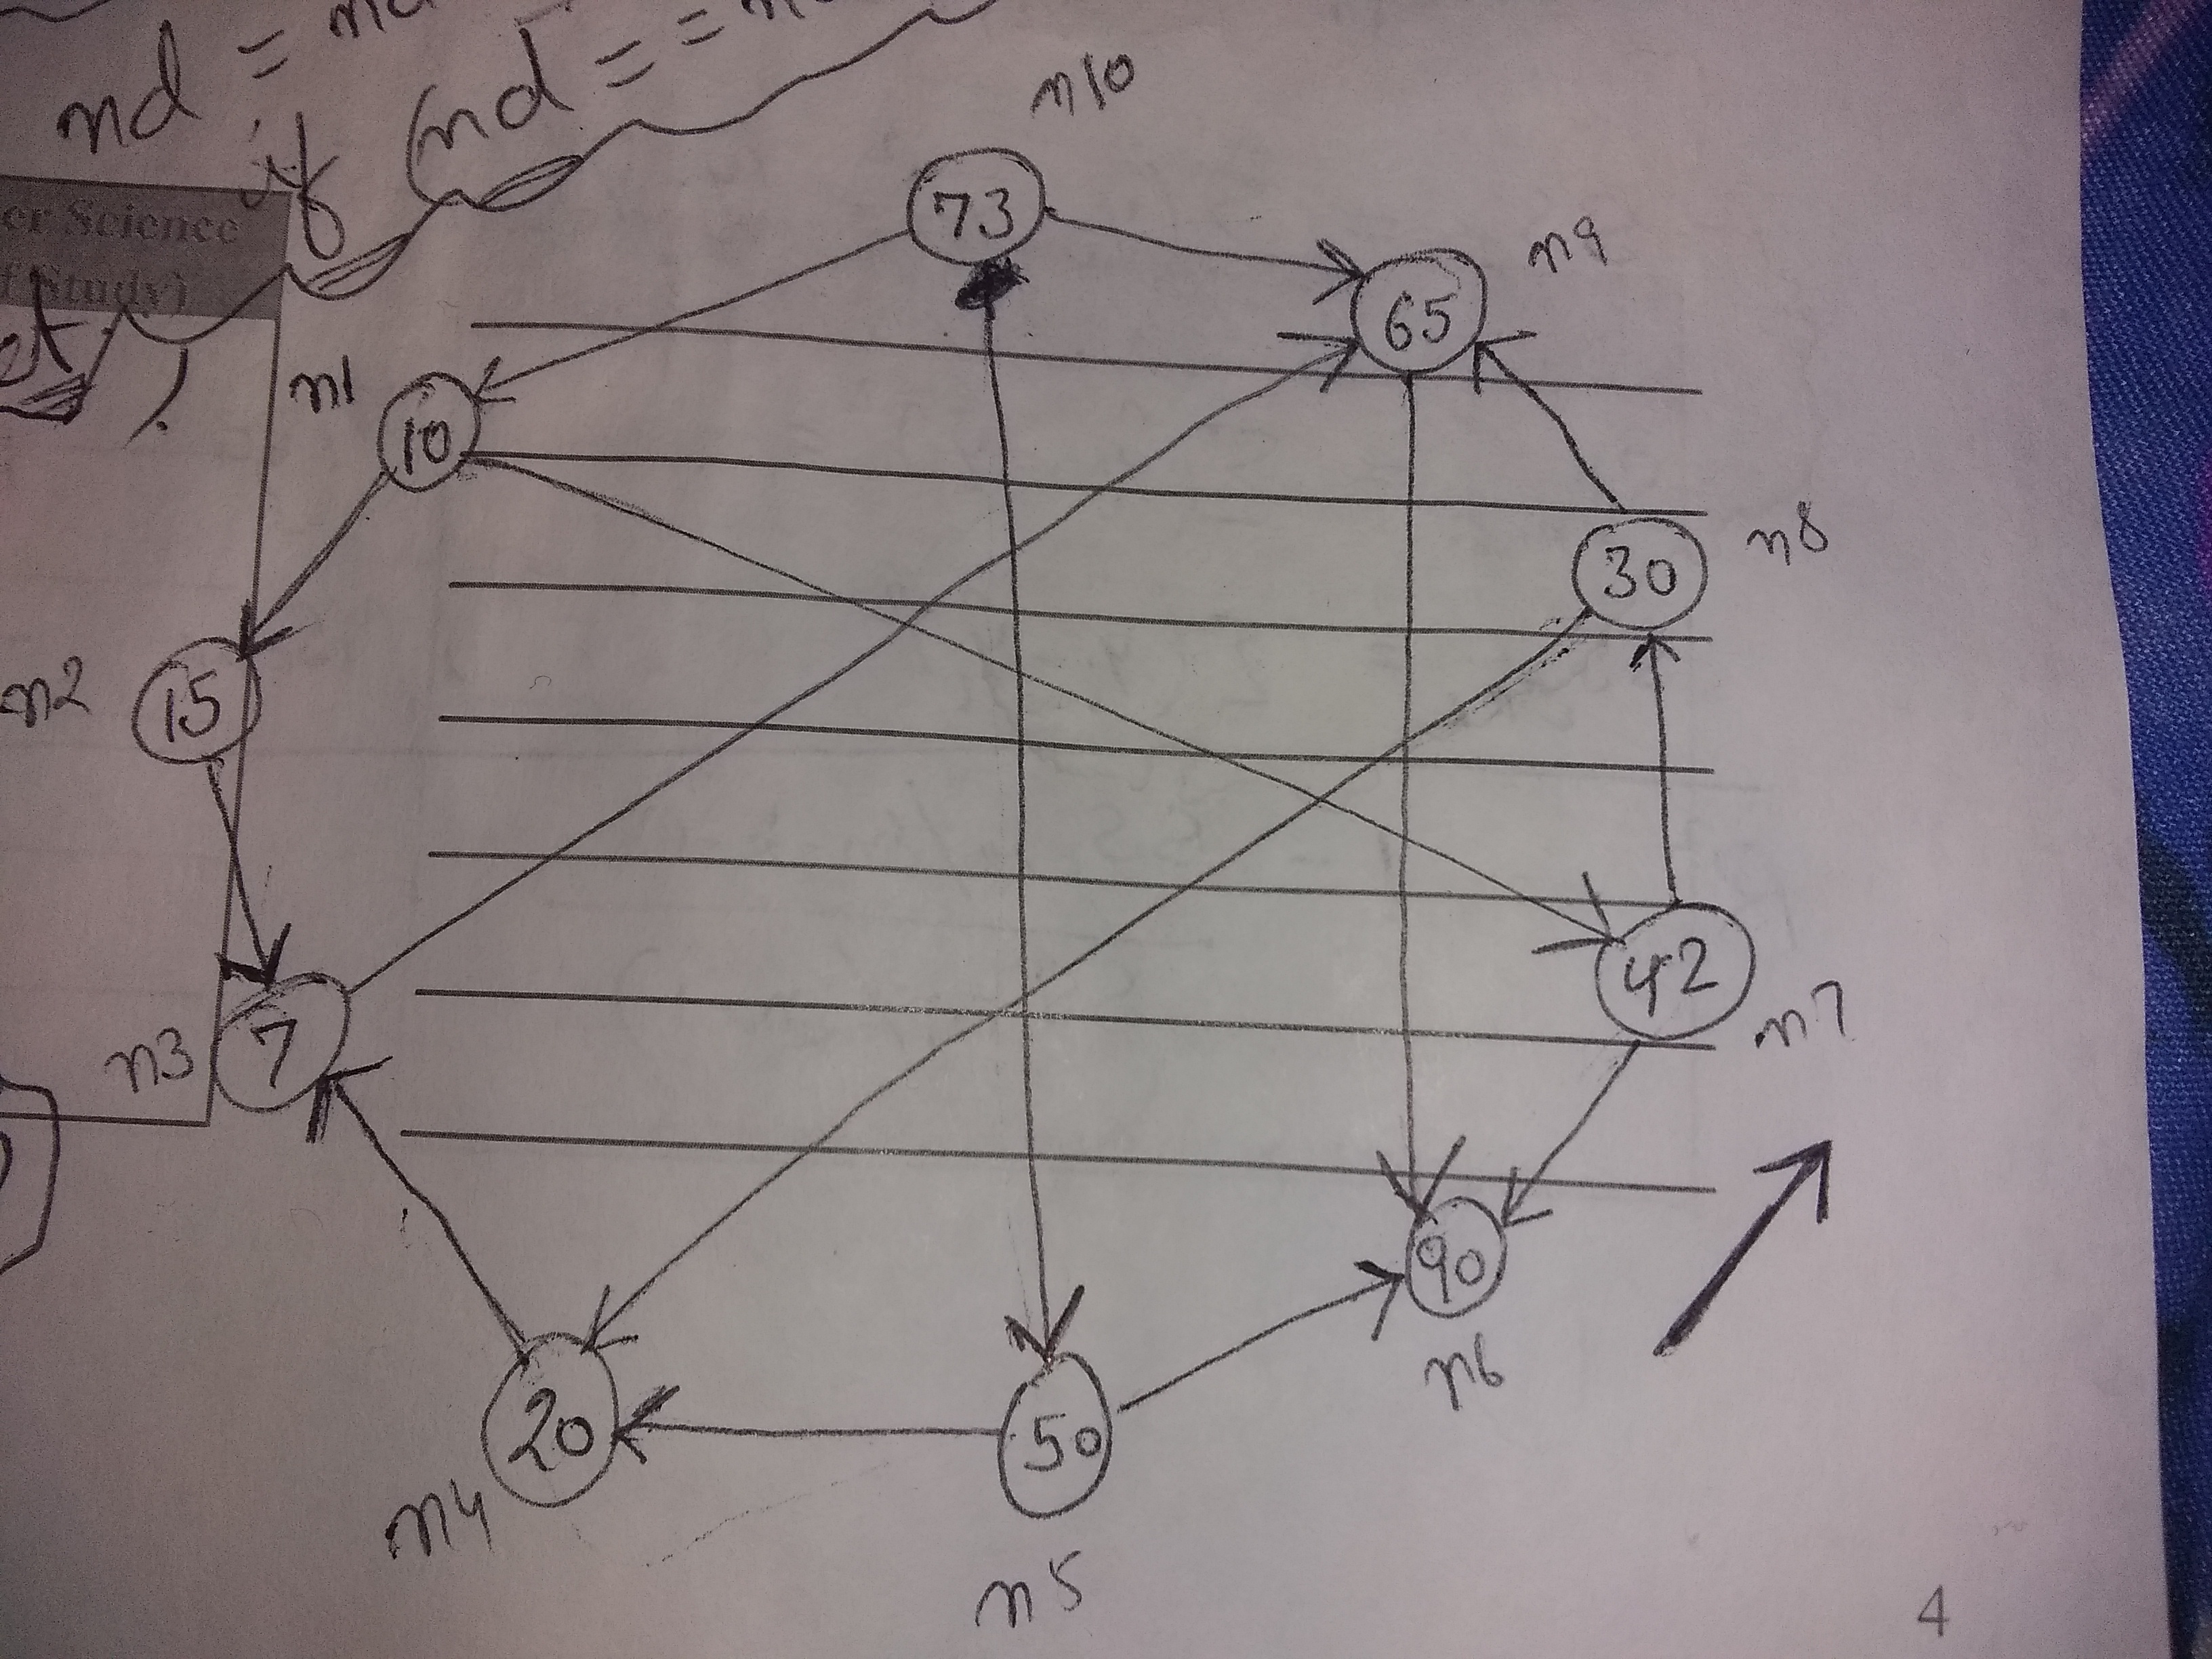 nd =
if (nd ==
er Science
f Study)
et
);
n10
73
n9
65
n1
10
n8
30
n2
15
42
n7
n3
7
90
n6
20
50
n4
n5
4